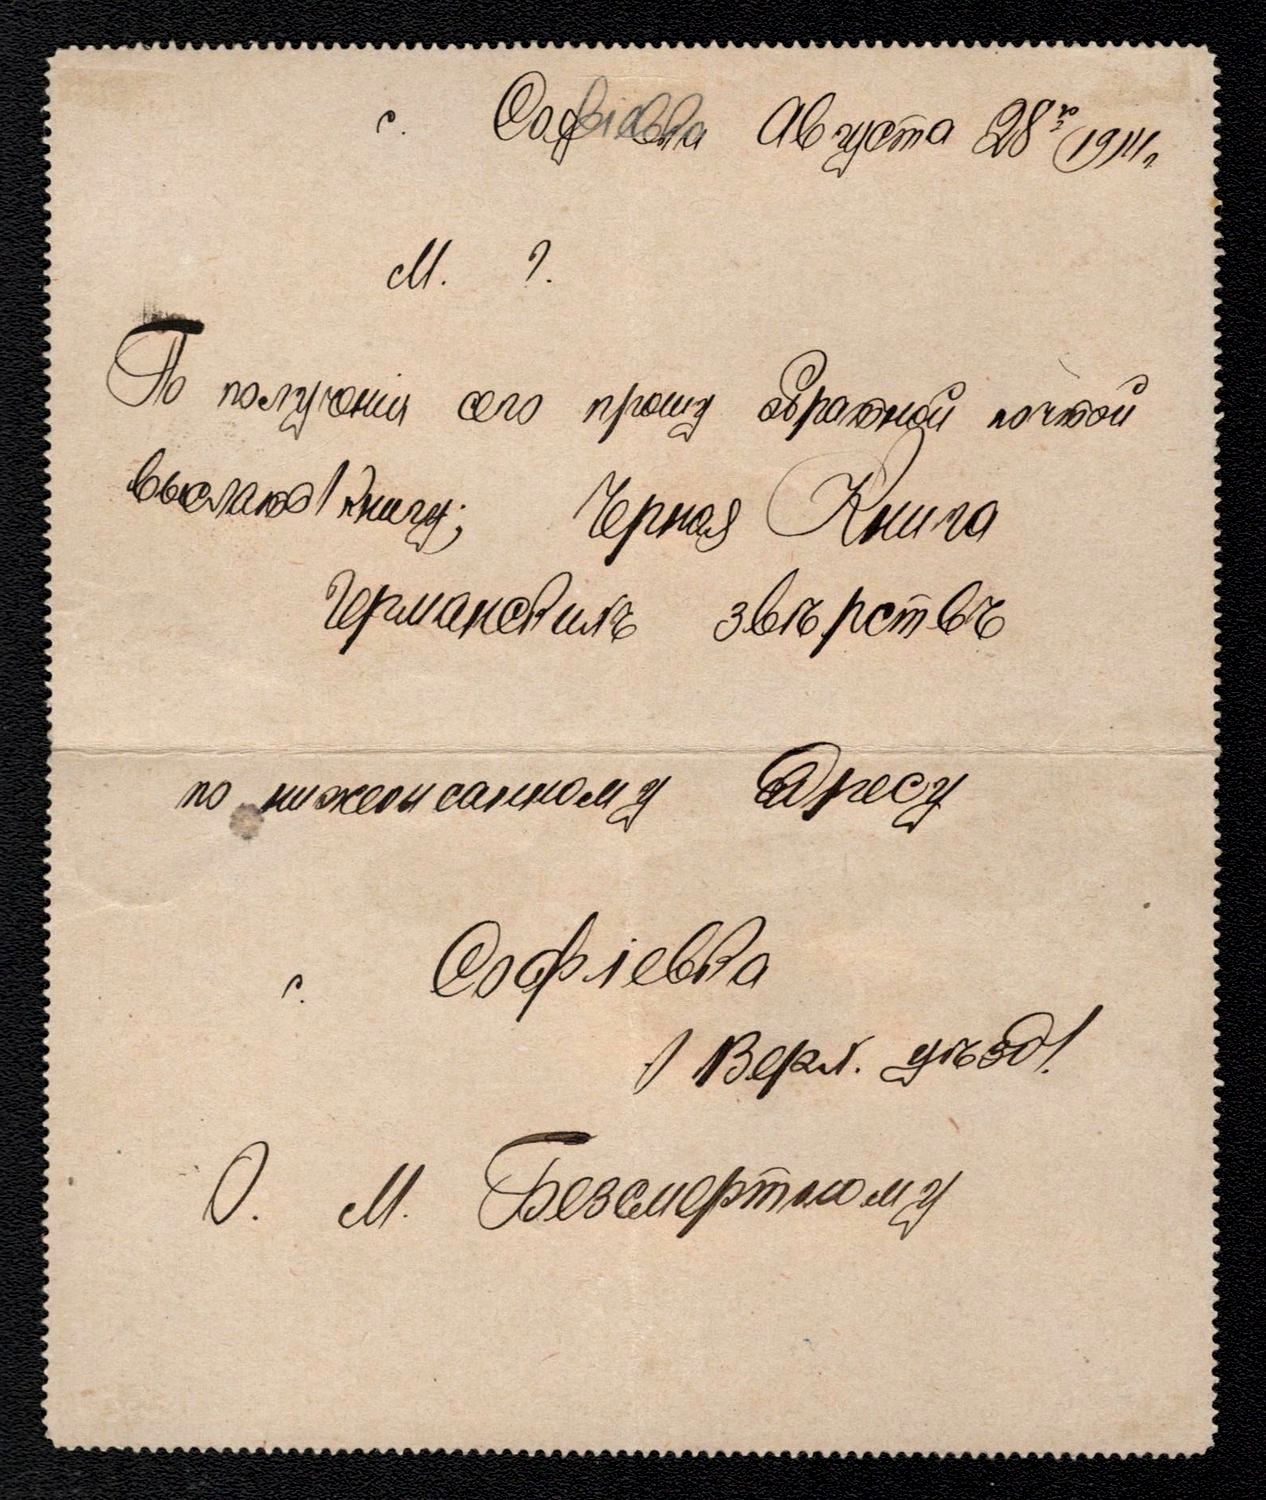 с. Софіевка Августа 28го 1914г.
М. Г.
По полученіи сего прошу обратной почтой
выслать книгу; Черная Книга
Германскихъ звѣрствъ
по нижеописанному Адресу
с. Софіевка
Верх. уѣзд.
О. М. Безсмертному